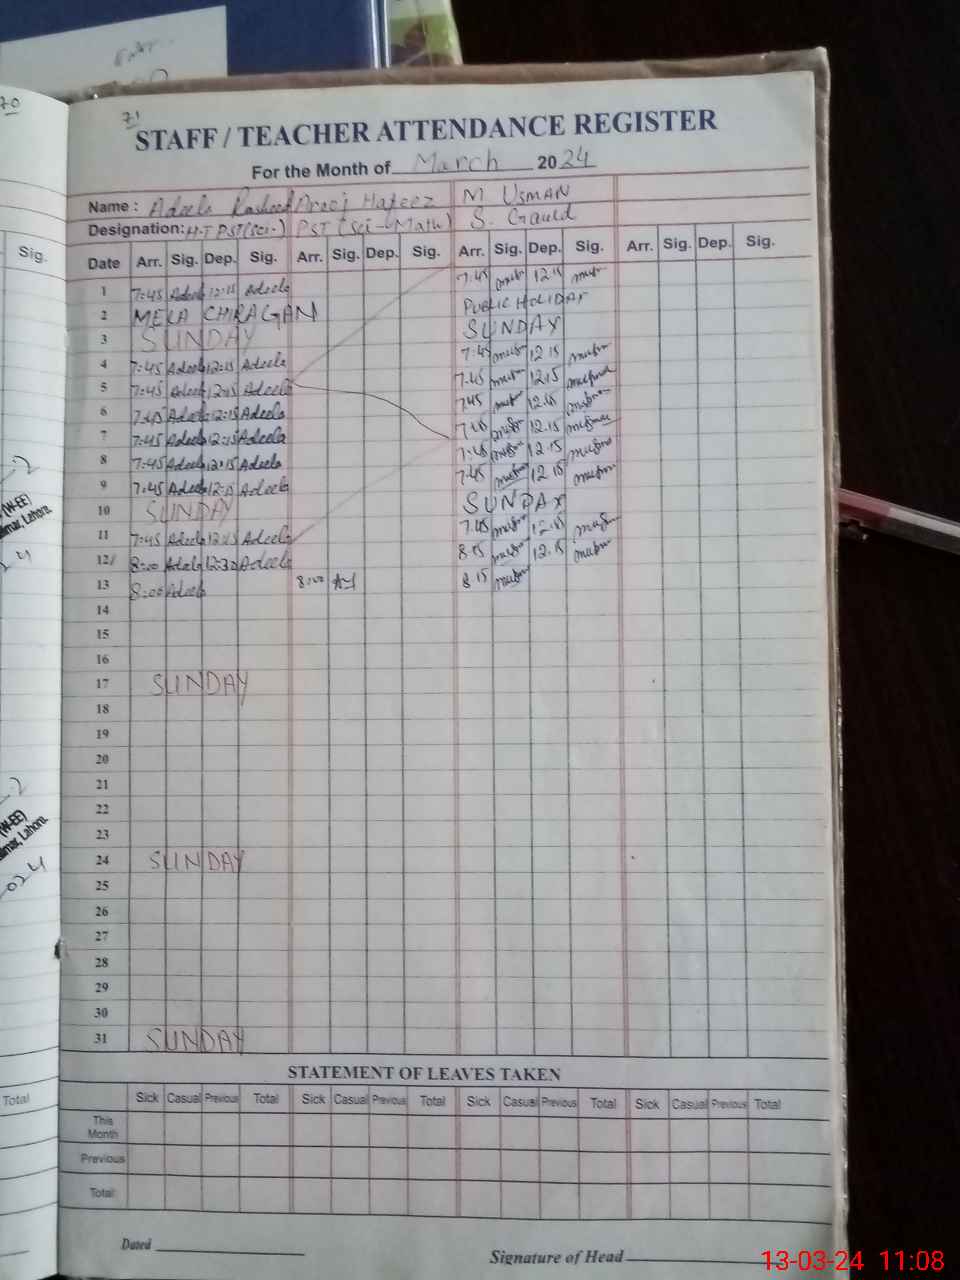 70
71
STAFF / TEACHER ATTENDANCE REGISTER
For the Month of March 2024
Name : Adeela Rasheed Arooj Hafeez M USMAN
Designation: H-T PST(Sci-) PST (Sci-Math) S. Gaurd
Sig.
Date Arr. Sig. Dep. Sig. Arr. Sig. Dep. Sig. Arr. Sig. Dep. Sig. Arr. Sig. Dep. Sig.
1 7:45 Adeela 12:15 Adeela 7.45 12.15
2 MELA CHIRAGAN PUBLIC HOLIDAY
3 SUNDAY SUNDAY
4 7:45 Adeela 12:15 Adeela 7.45 12.15
5 7:45 Adeela 12:15 Adeela 7.45 12.15
6 7:45 Adeela 12:15 Adeela 7.45 12.15
7 7:45 Adeela 12:15 Adeela 7.45 12.15
8 7:45 Adeela 12:15 Adeela 7.45 12.15
9 7:45 Adeela 12:15 Adeela 7.45 12.15
10 SUNDAY SUNDAY
11 7:45 Adeela 12:15 Adeela 7.45 12.15
12 8:00 Adeela 12:30 Adeela 8.15 12.15
13 8:00 Adeela 8:00 8.15
14
15
16
17 SUNDAY
18
19
20
21
22
23
24 SUNDAY
25
26
27
28
29
30
31 SUNDAY
(W-EE)
Lahore.
(W-EE)
Lahore.
STATEMENT OF LEAVES TAKEN
Total
Sick Casual Previous Total Sick Casual Previous Total Sick Casual Previous Total Sick Casual Previous Total
This Month
Previous
Total:
Dated
Signature of Head
13-03-24 11:08